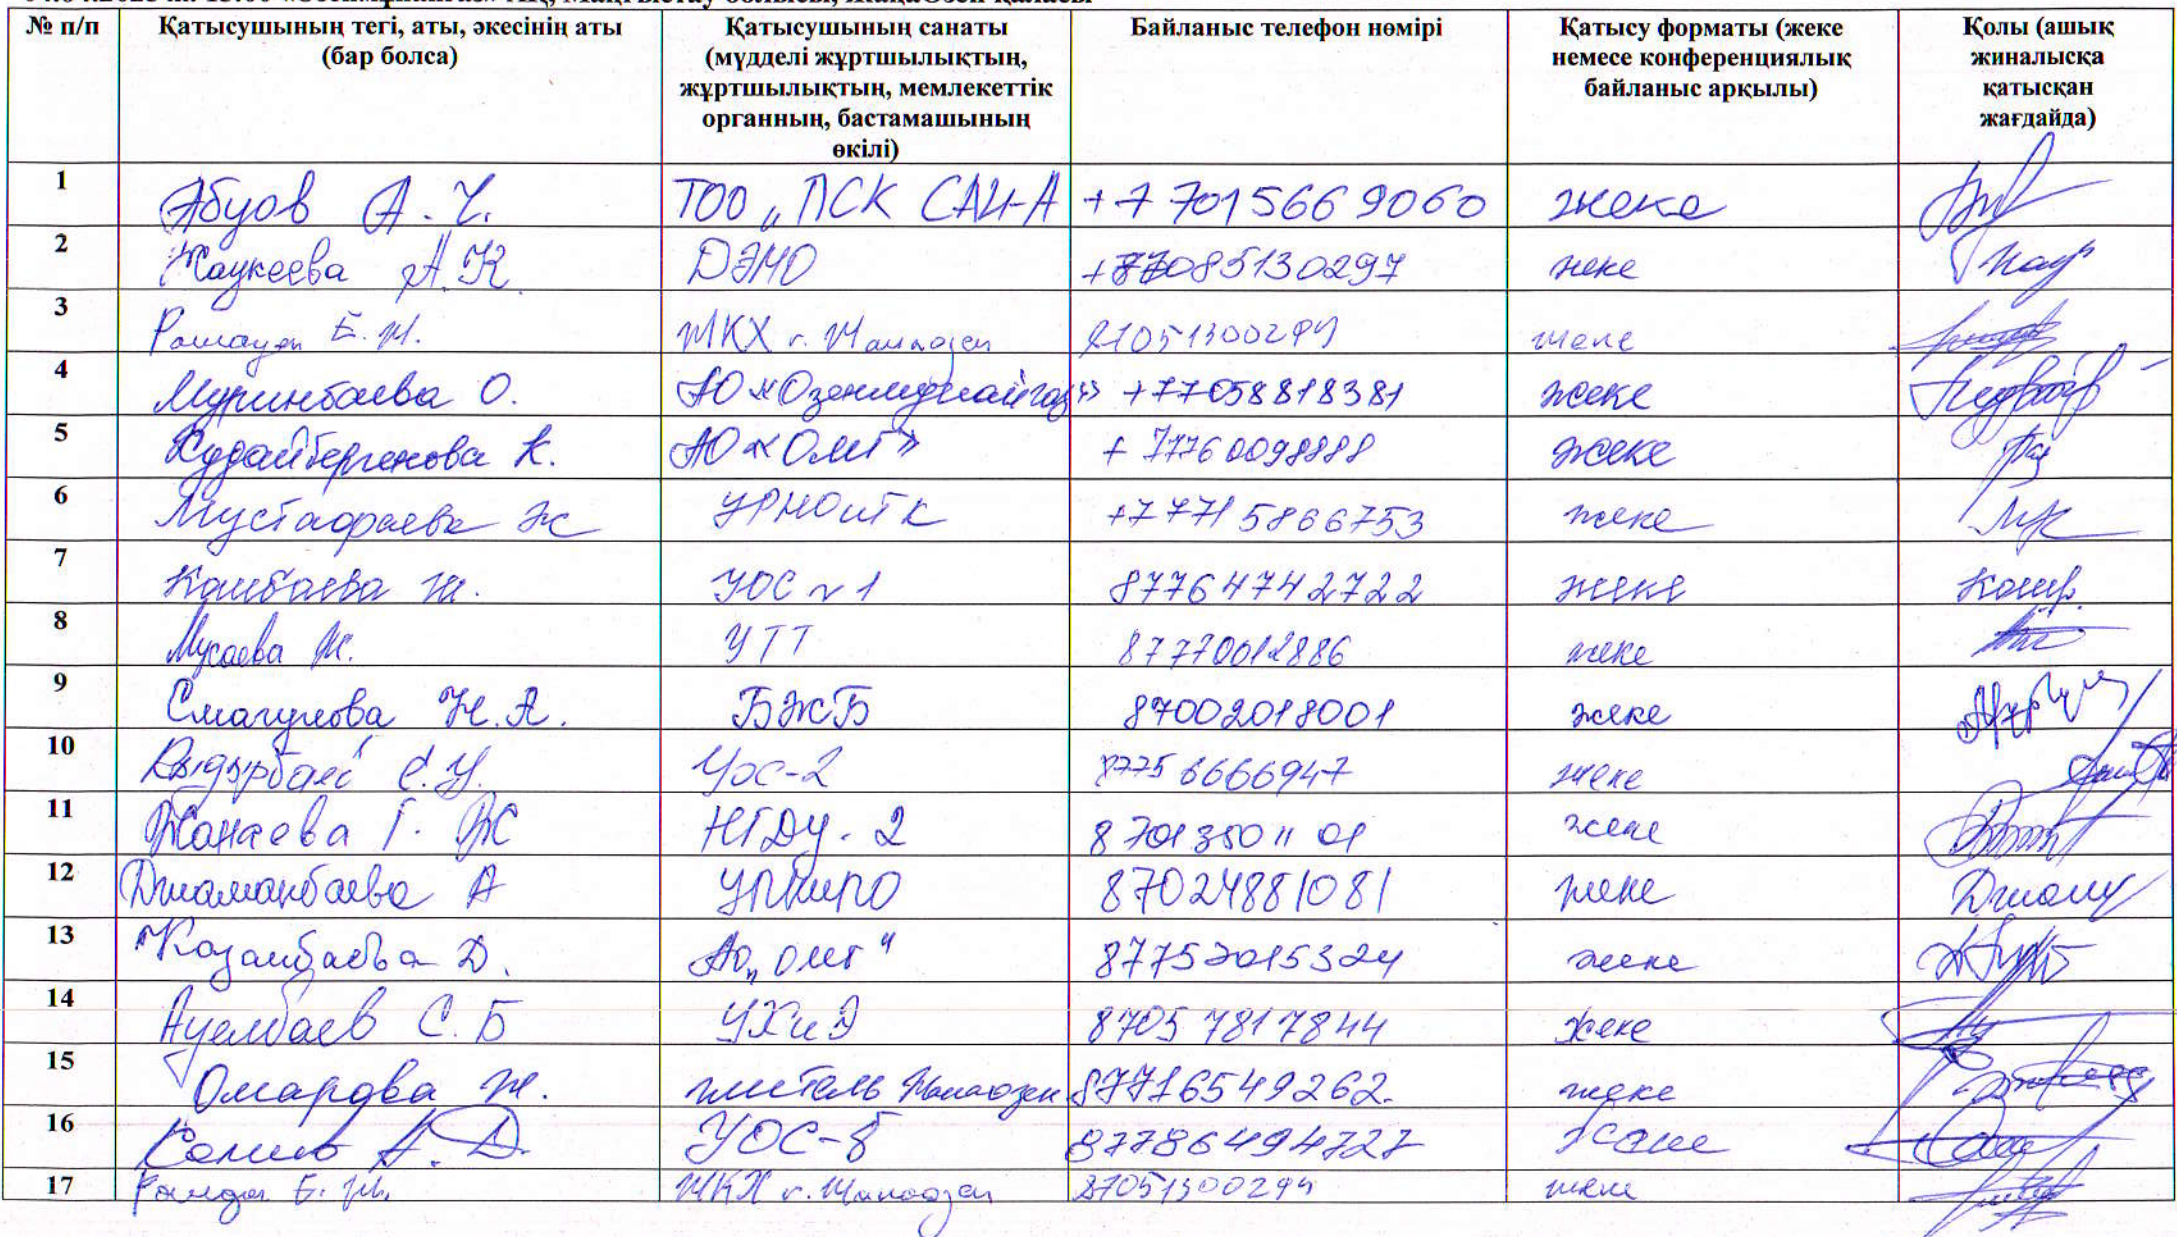 № п/п Қатысушының тегі, аты, әкесінің аты (бар болса) Қатысушының санаты (мүдделі жұртшылықтың, жұртшылықтың, мемлекеттік органның, бастамашының өкілі) Байланыс телефон нөмірі Қатысу форматы (жеке немесе конференциялық байланыс арқылы) Қолы (ашық жиналысқа қатысқан жағдайда)
1 Абуов А.Ч. ТОО „ПСК САИ-А +7 7015669060 жеке
2 Жаукеева А.К. ДЭМО 77085130297 жеке
3 Е.М. ЖКХ г. Жанаозен 87051300294 жеке
4 Муринбаева О. АО «Озенмунайгаз» +77058818381 жеке
5 Кудайбергенова К. АО «ОМГ» +77760098888 жеке
6 Мустафаева Ж УРНОиТК +77715866753 жеке
7 Камбаева Ж. УОС №1 87764742722 жеке
8 Мусаева Ж. УТТ 87770012886 жеке
9 Смагулова Н.А. БЖБ 87002018001 жеке
10 Қыдырбай С.У. УОС-2 87756666947 жеке
11 Жанаева Г. Ж НГДУ-2 87013501101 жеке
12 Джаманбаева А УПНиПО 87024881081 жеке
13 Казамбаева Д. АО „ОМГ" 87752015324 жеке
14 Ауелбаев С.Б УХиЭ 87057817844 жеке
15 Омарова Ж. житель Жанаозен 87716549262 жеке
16 А.Д. УОС-8 87786494727 жеке
17 Е. М. ЖКХ г. Жанаозен 87051300294 жеке